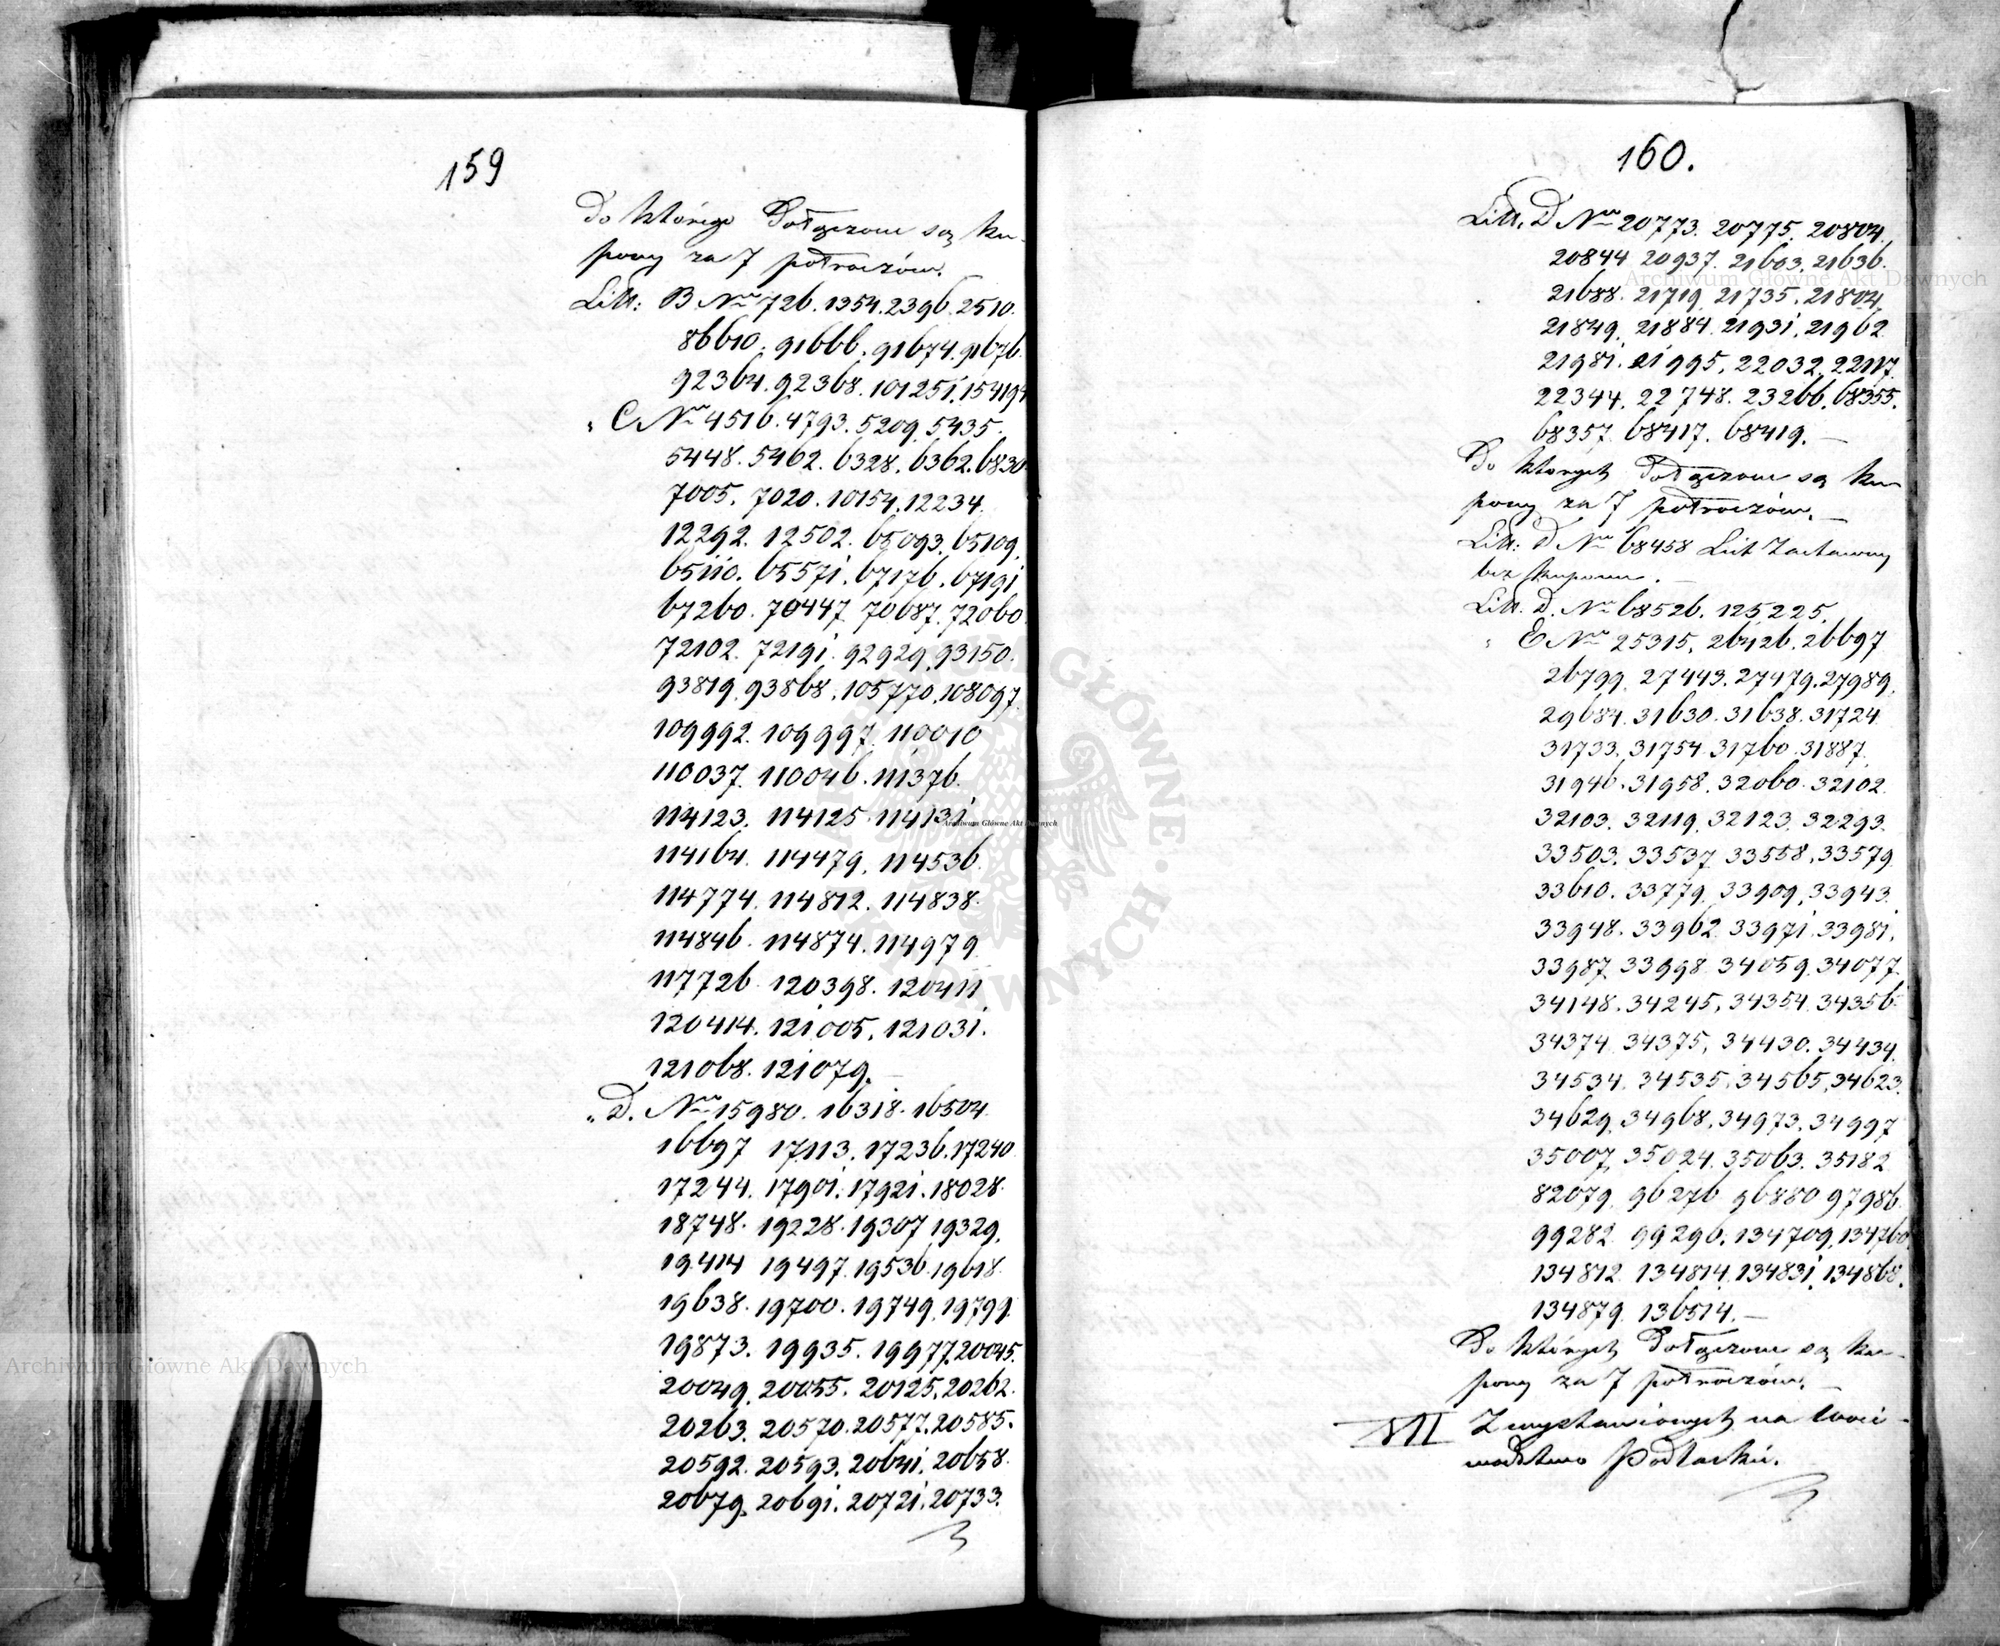 159
Do którego Dołączone są ku-
pony za 7 półroczów.
Litt: B Nro 726. 1354. 2396. 2510.
86610. 91666. 91674. 91676.
92364. 92368. 101251. 154194
" C Nro 4516. 4793. 5209. 5435.
5448. 5462. 6328. 6362. 6830
7005. 7020. 10154. 12234.
12292. 12502. 65093. 65109.
65110. 65571. 67176. 67191
67260. 70447. 70687. 72060.
72102. 72191. 92929. 93150.
93819. 93868. 105770. 108097.
109992. 109997. 110010
110037. 110046. 111376.
114123. 114125. 114131
114164. 114479. 114536.
114774. 114812. 114838.
114846. 114874. 114979
117726. 120398. 120411
120414. 121005. 121031.
121068. 121079. —
" D. Nro 15980. 16318. 16504.
16697 17113. 17236. 17240.
17244. 17901. 17921. 18028.
18748. 19228. 19307 19329.
19414 19497. 19536. 19618.
19638. 19700. 19749. 19799.
19873. 19935. 19977. 20045.
20049. 20055. 20125. 20262.
20263. 20570. 20577. 20585.
20592. 20593. 20641. 20658.
20679. 20691. 20721. 20733.
160.
Litt. D Nro 20773. 20775. 20804.
20844 20937. 21603. 21636.
21688. 21719. 21735. 21804.
21849. 21884. 21931. 21962
21981. 21995. 22032. 22117.
22344. 22748. 23266. 68355.
68357. 68417. 68419. —
Do których Dołączone są ku-
pony za 7 półroczów. —
Litt: D Nro 68458 List Zastawny
bez kuponu. —
Litt. D. Nro 68526. 125225.
" E Nro 25315. 26426. 26697
26799. 27443. 27479. 27989.
29684. 31630. 31638. 31724.
31733. 31754. 31760. 31887.
31946. 31958. 32060. 32102.
32103. 32119. 32123. 32293.
33503. 33537. 33558. 33579.
33610. 33779. 33909. 33943.
33948. 33962. 33971. 33981.
33987. 33998. 34059. 34077.
34148. 34245. 34354. 34356.
34374. 34375. 34430. 34434.
34534. 34535. 34565. 34623.
34629. 34968. 34973. 34997
35007. 35024. 35063. 35182.
82079. 96276. 96880 97986.
99282. 99296. 134709. 134760.
134812. 134814. 134831. 134868.
134879. 136514. —
Do których Dołączone są ku-
pony za 7 półroczów. —
VII Z wystawionych na Woie-
wodztwo Podlaskie.
Archiwum Główne Akt Dawnych
Archiwum Główne Akt Dawnych
Archiwum Główne Akt Dawnych